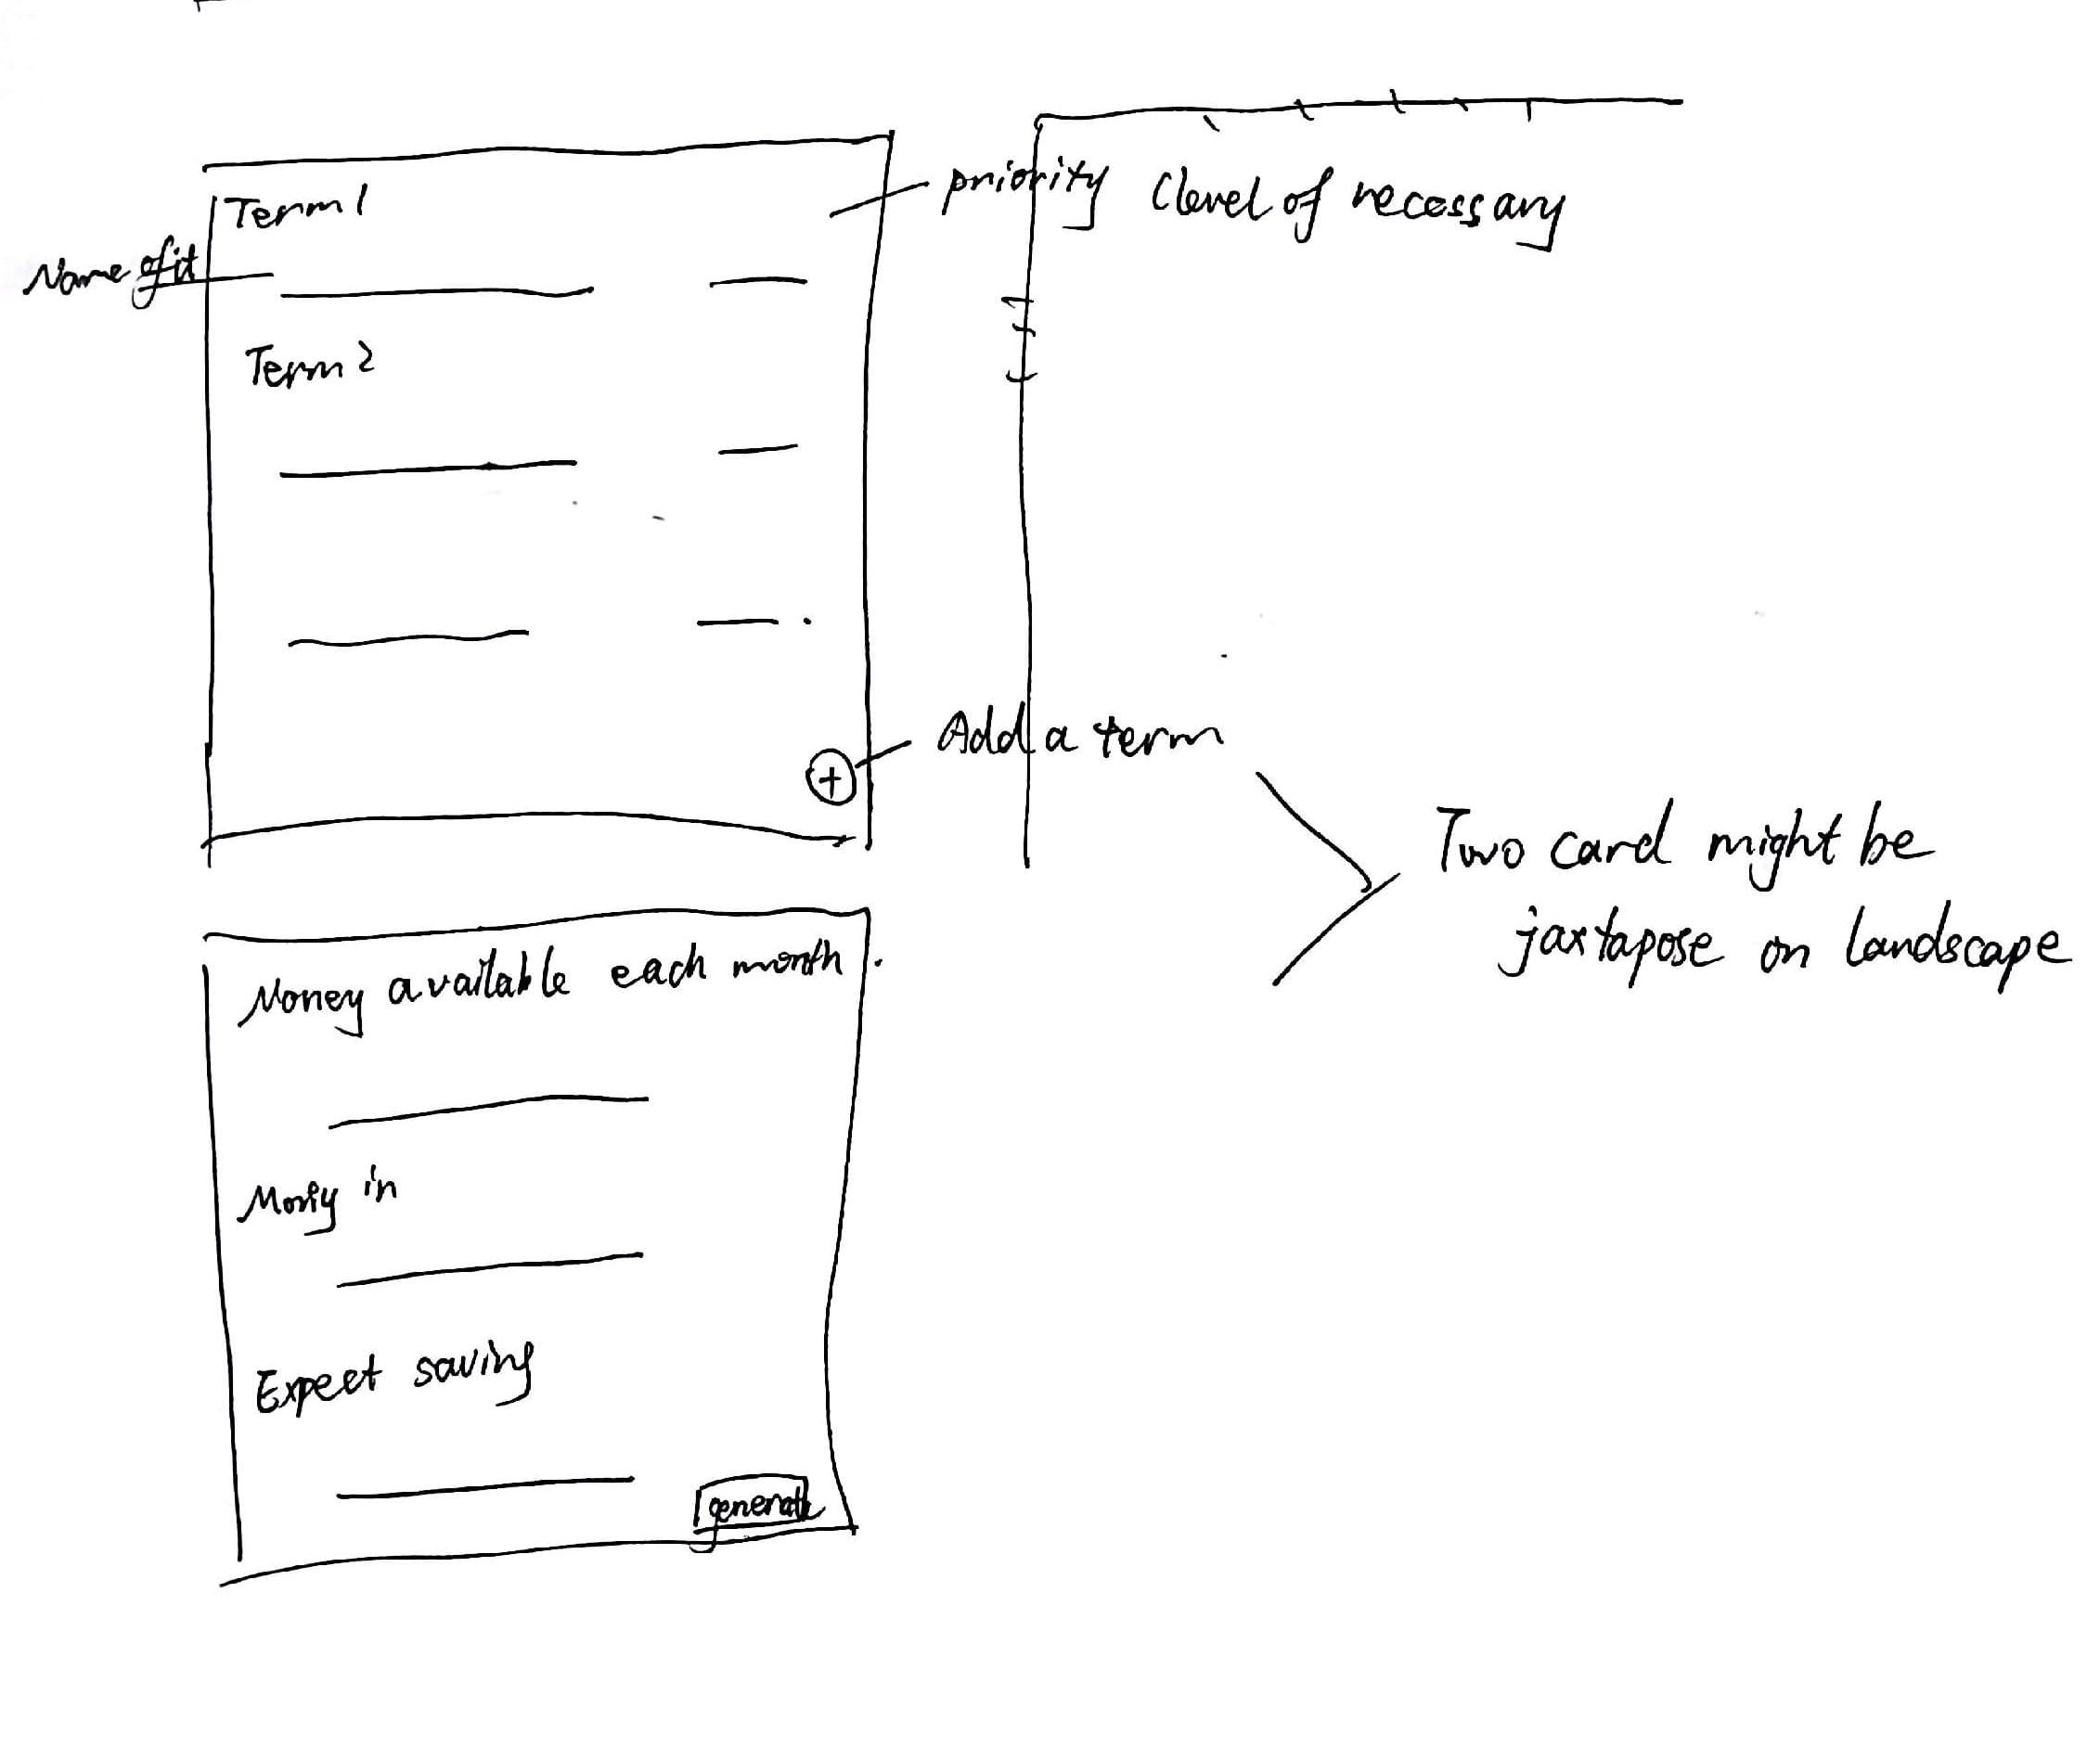 Term 1
priority (level of necessary
Name of it
Term 2
Add a term
+
Two card might be
jaxtapose on landscape
Money available each month.
Mony in
Expect saving
generate